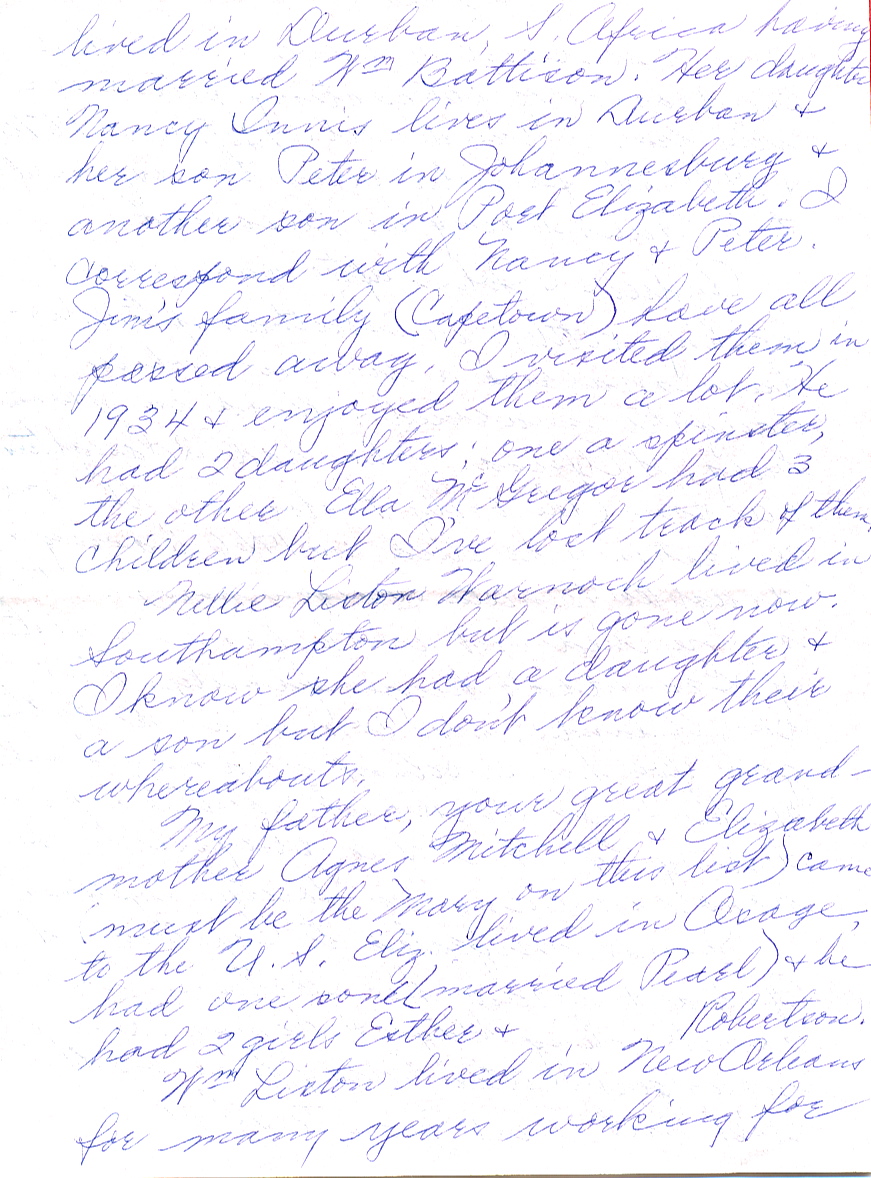 lived in Durban, S. Africa having
married Wm Battison. Her daughter
Nancy Innis lives in Durban &
her son Peter in Johannesburg &
another son in Port Elizabeth. I
correspond with Nancy & Peter.
Jim's family (Capetown) have all
passed away. I visited them in
1934 & enjoyed them a lot. He
had 2 daughters; one a spinster,
the other Ella McGregor had 3
children but I've lost track of them.
Nellie Liston Warnock lived in
Southampton but is gone now.
I know she had a daughter &
a son but I don't know their
whereabouts.
My father, your great grand-
mother Agnes Mitchell & Elizabeth
(must be the Mary on this list) came
to the U.S. Eliz. lived in Osage,
had one son (married Pearl) & he
had 2 girls Esther & Robertson.
Wm Liston lived in New Orleans
for many years working for